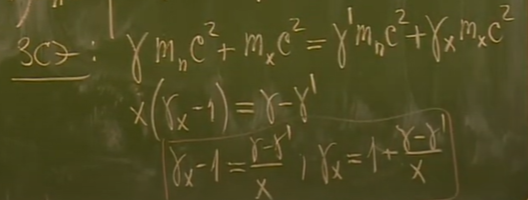 ЗСЭ: γ mₙc² + mₓc² = γ'mₙc² + γₓ mₓc²
x(γₓ-1) = γ-γ'
γₓ-1 = (γ-γ')/x , γₓ = 1 + (γ-γ')/x